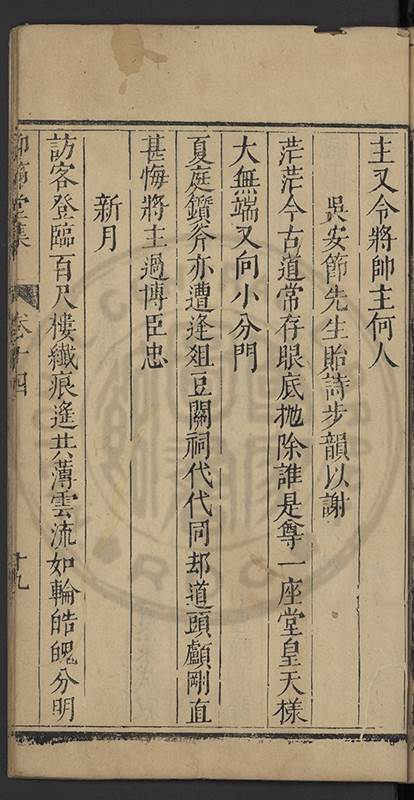 主又令將帥主何人
吳安節先生貽詩步韻以謝
茫茫今古道常存眼底拋除誰是尊一座堂皇天樣
大無端又向小分門
夏庭鑽斧亦遭逢俎豆關祠代代同却道頭顱剛直
甚悔將主過博臣忠
新月
訪客登臨百尺樓纖痕遙共薄雲流如輪皓魄分明
堂集
卷十四
十九